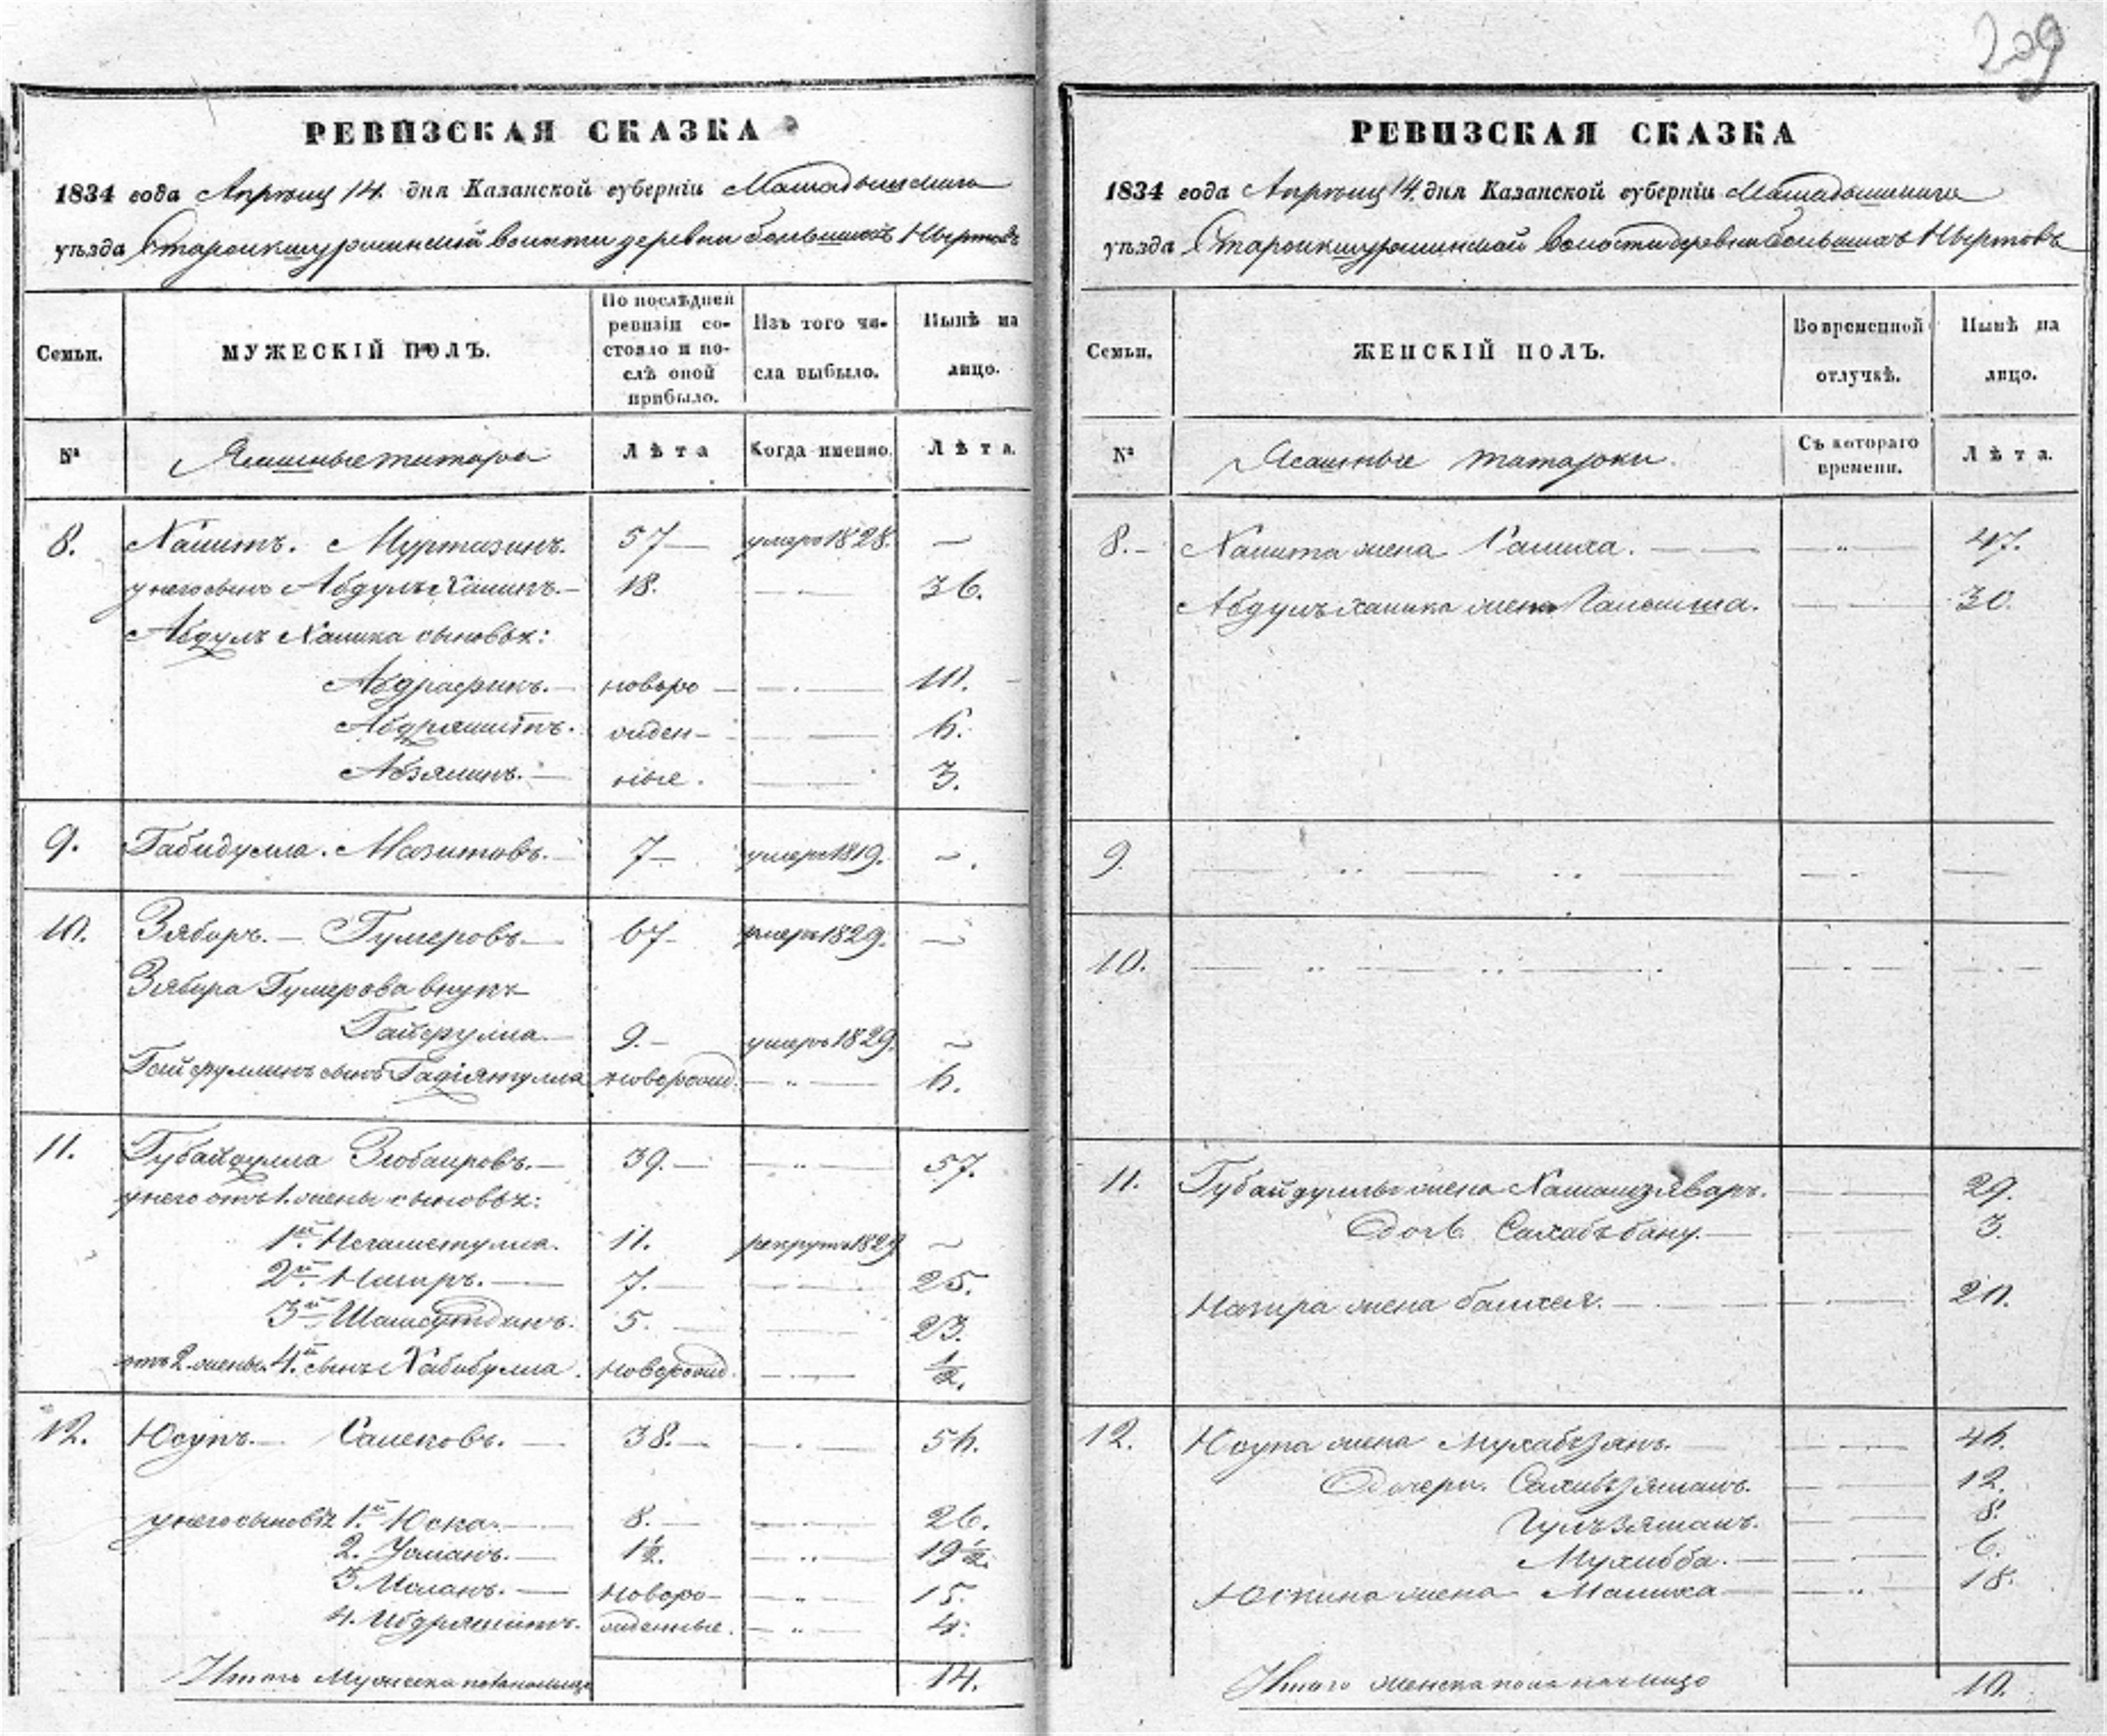 209
РЕВИЗСКАЯ СКАЗКА
1834 года Апрѣля 14. дня Казанской губерніи Мамадышскаго
уѣзда Староикшурминской волости деревни большихъ Ныртовъ
Семьи.
МУЖЕСКІЙ ПОЛЪ.
По послѣдней ревизіи состояло и послѣ оной прибыло.
Изъ того числа выбыло.
Нынѣ на лицо.
№
Ясашные татара
Лѣта
Когда именно.
Лѣта.
8. Хамитъ. Муртазинъ. 57 умеръ 1828. —
у него сынъ Абдулъ Халикъ. 18. 36.
Абдулъ Халика сыновья:
Абдрафикъ. новоро 10.
Абдрашитъ. жден- 6.
Абзялилъ. ные. 3.
9. Габидулла. Мазитовъ. 7 умеръ 1819. —
10. Зябиръ. Гумеровъ 67 умеръ 1829. —
Зябира Гумерова внукъ
Гайфулла 9. умеръ 1829. —
Гайфуллинъ сынъ новорожд. 6.
11. Губайдулла Зюбаировъ. 39. 57.
у него отъ 1. жены сыновья:
1й. Негаметулла. 11. рекрутъ 1829 —
2й. Нагиръ. 7. 25.
3й. Шамсутдинъ. 5. 23.
отъ 2. жены. 4й. сынъ Хабибулла. новорожд. 1/2.
12. Юсупъ. Салеховъ. 38. 56.
у него сыновья 1й. Юска. 8. 26.
2. Усманъ. 1 1/2. 19 1/2.
3. новоро- 15.
4. Абдряшитъ. жденные. 4.
Итого Мужеска пола налицо 14.
РЕВИЗСКАЯ СКАЗКА
1834 года Апрѣля 14. дня Казанской губерніи Мамадышскаго
уѣзда Староикшурминской волости деревни большихъ Ныртовъ
Семьи.
ЖЕНСКІЙ ПОЛЪ.
Во временной отлучкѣ.
Нынѣ на лицо.
№
Ясашные татарки.
Съ котораго времени.
Лѣта.
8. Хамита жена 47.
Абдулъ халика жена 30.
9.
10.
11. Губайдуллы жена 29.
Дочь Сахабъбану. 3.
Нагира жена 20.
12. Юсупа жена Мухабзянъ. 46.
Дочери. Сахибзямалъ. 12.
Гулъзямалъ. 8.
Мухибба. 6.
Юскина жена Малика 18.
Итого женска пола налицо 10.